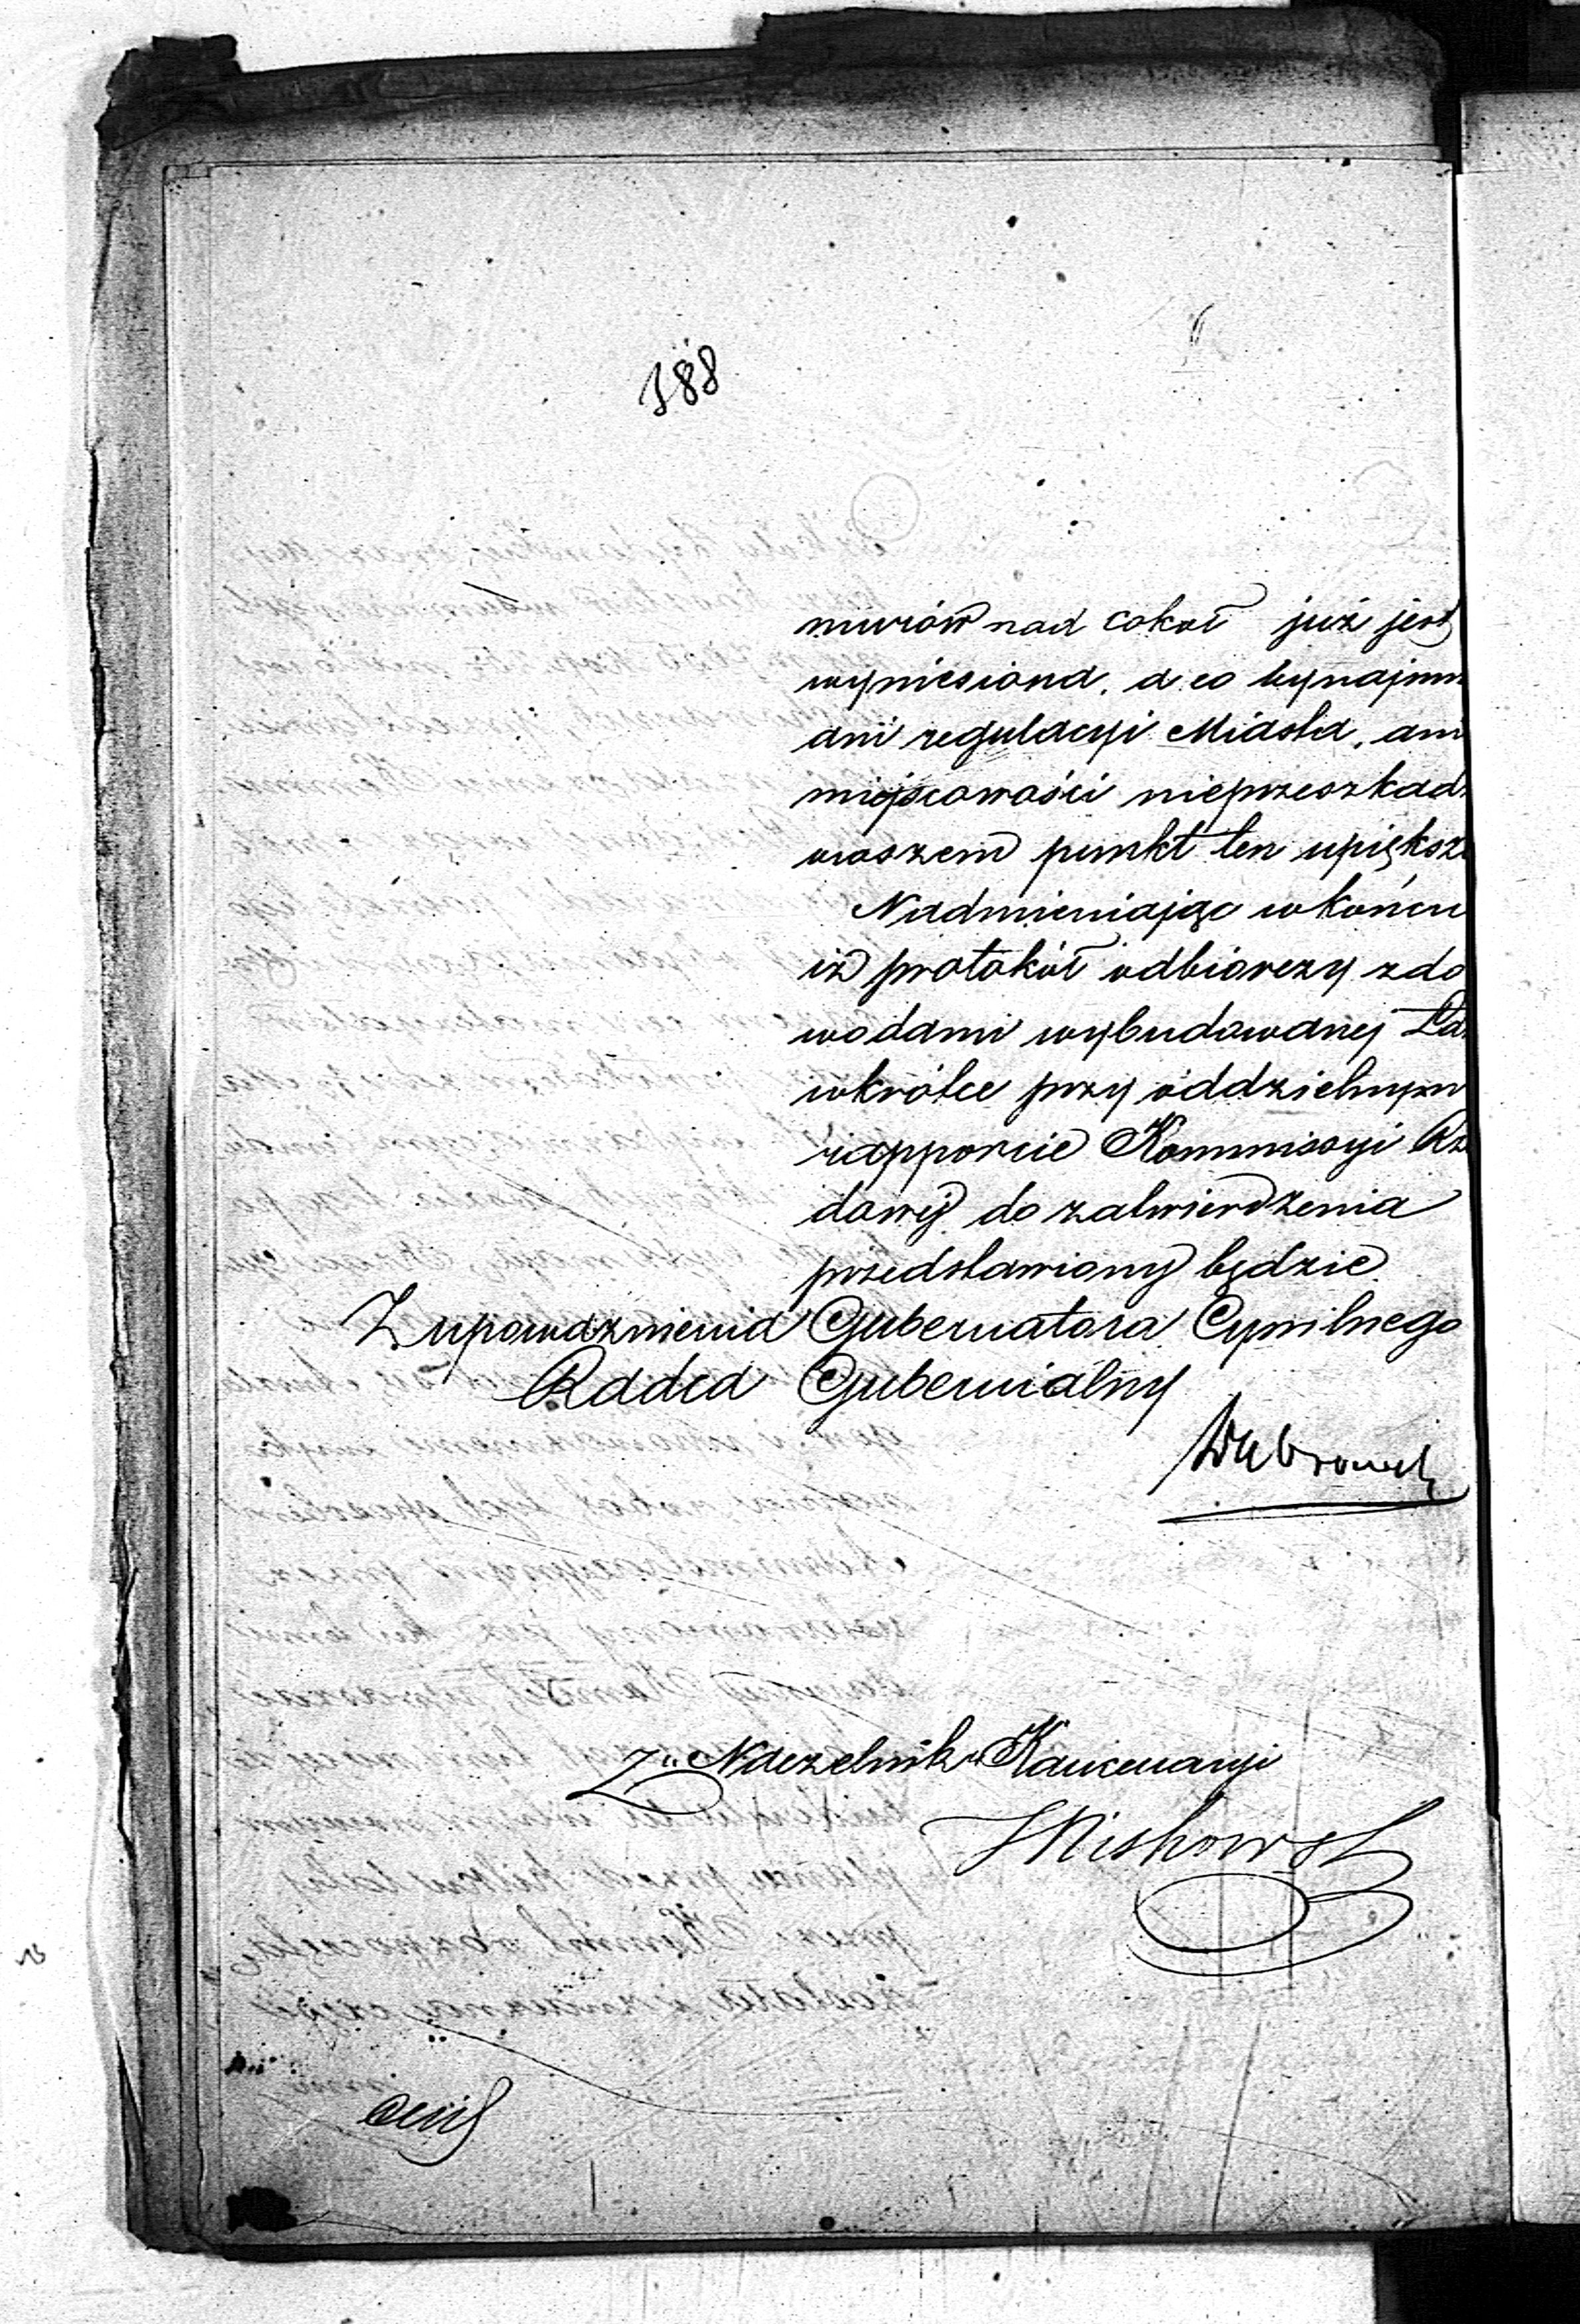 188
murów nad cokoł już jest
wyniesiona, a co bynajmn
ani regulacyi Miasta, ani
miejscowości nieprzeszkad
owszem punkt ten upiększ
Nadmieniając wkońcu
iż protokół odbiorczy zdo
wodami wybudowanej
wkrótce przy oddzielnym
rapporcie Kommissyi Rzą
dowej do zatwierdzenia
przedstawiony będzie
Z upoważnienia Gubernatora Cywilnego
Radca Gubernialny
Z. Naczelnika Kancellaryi